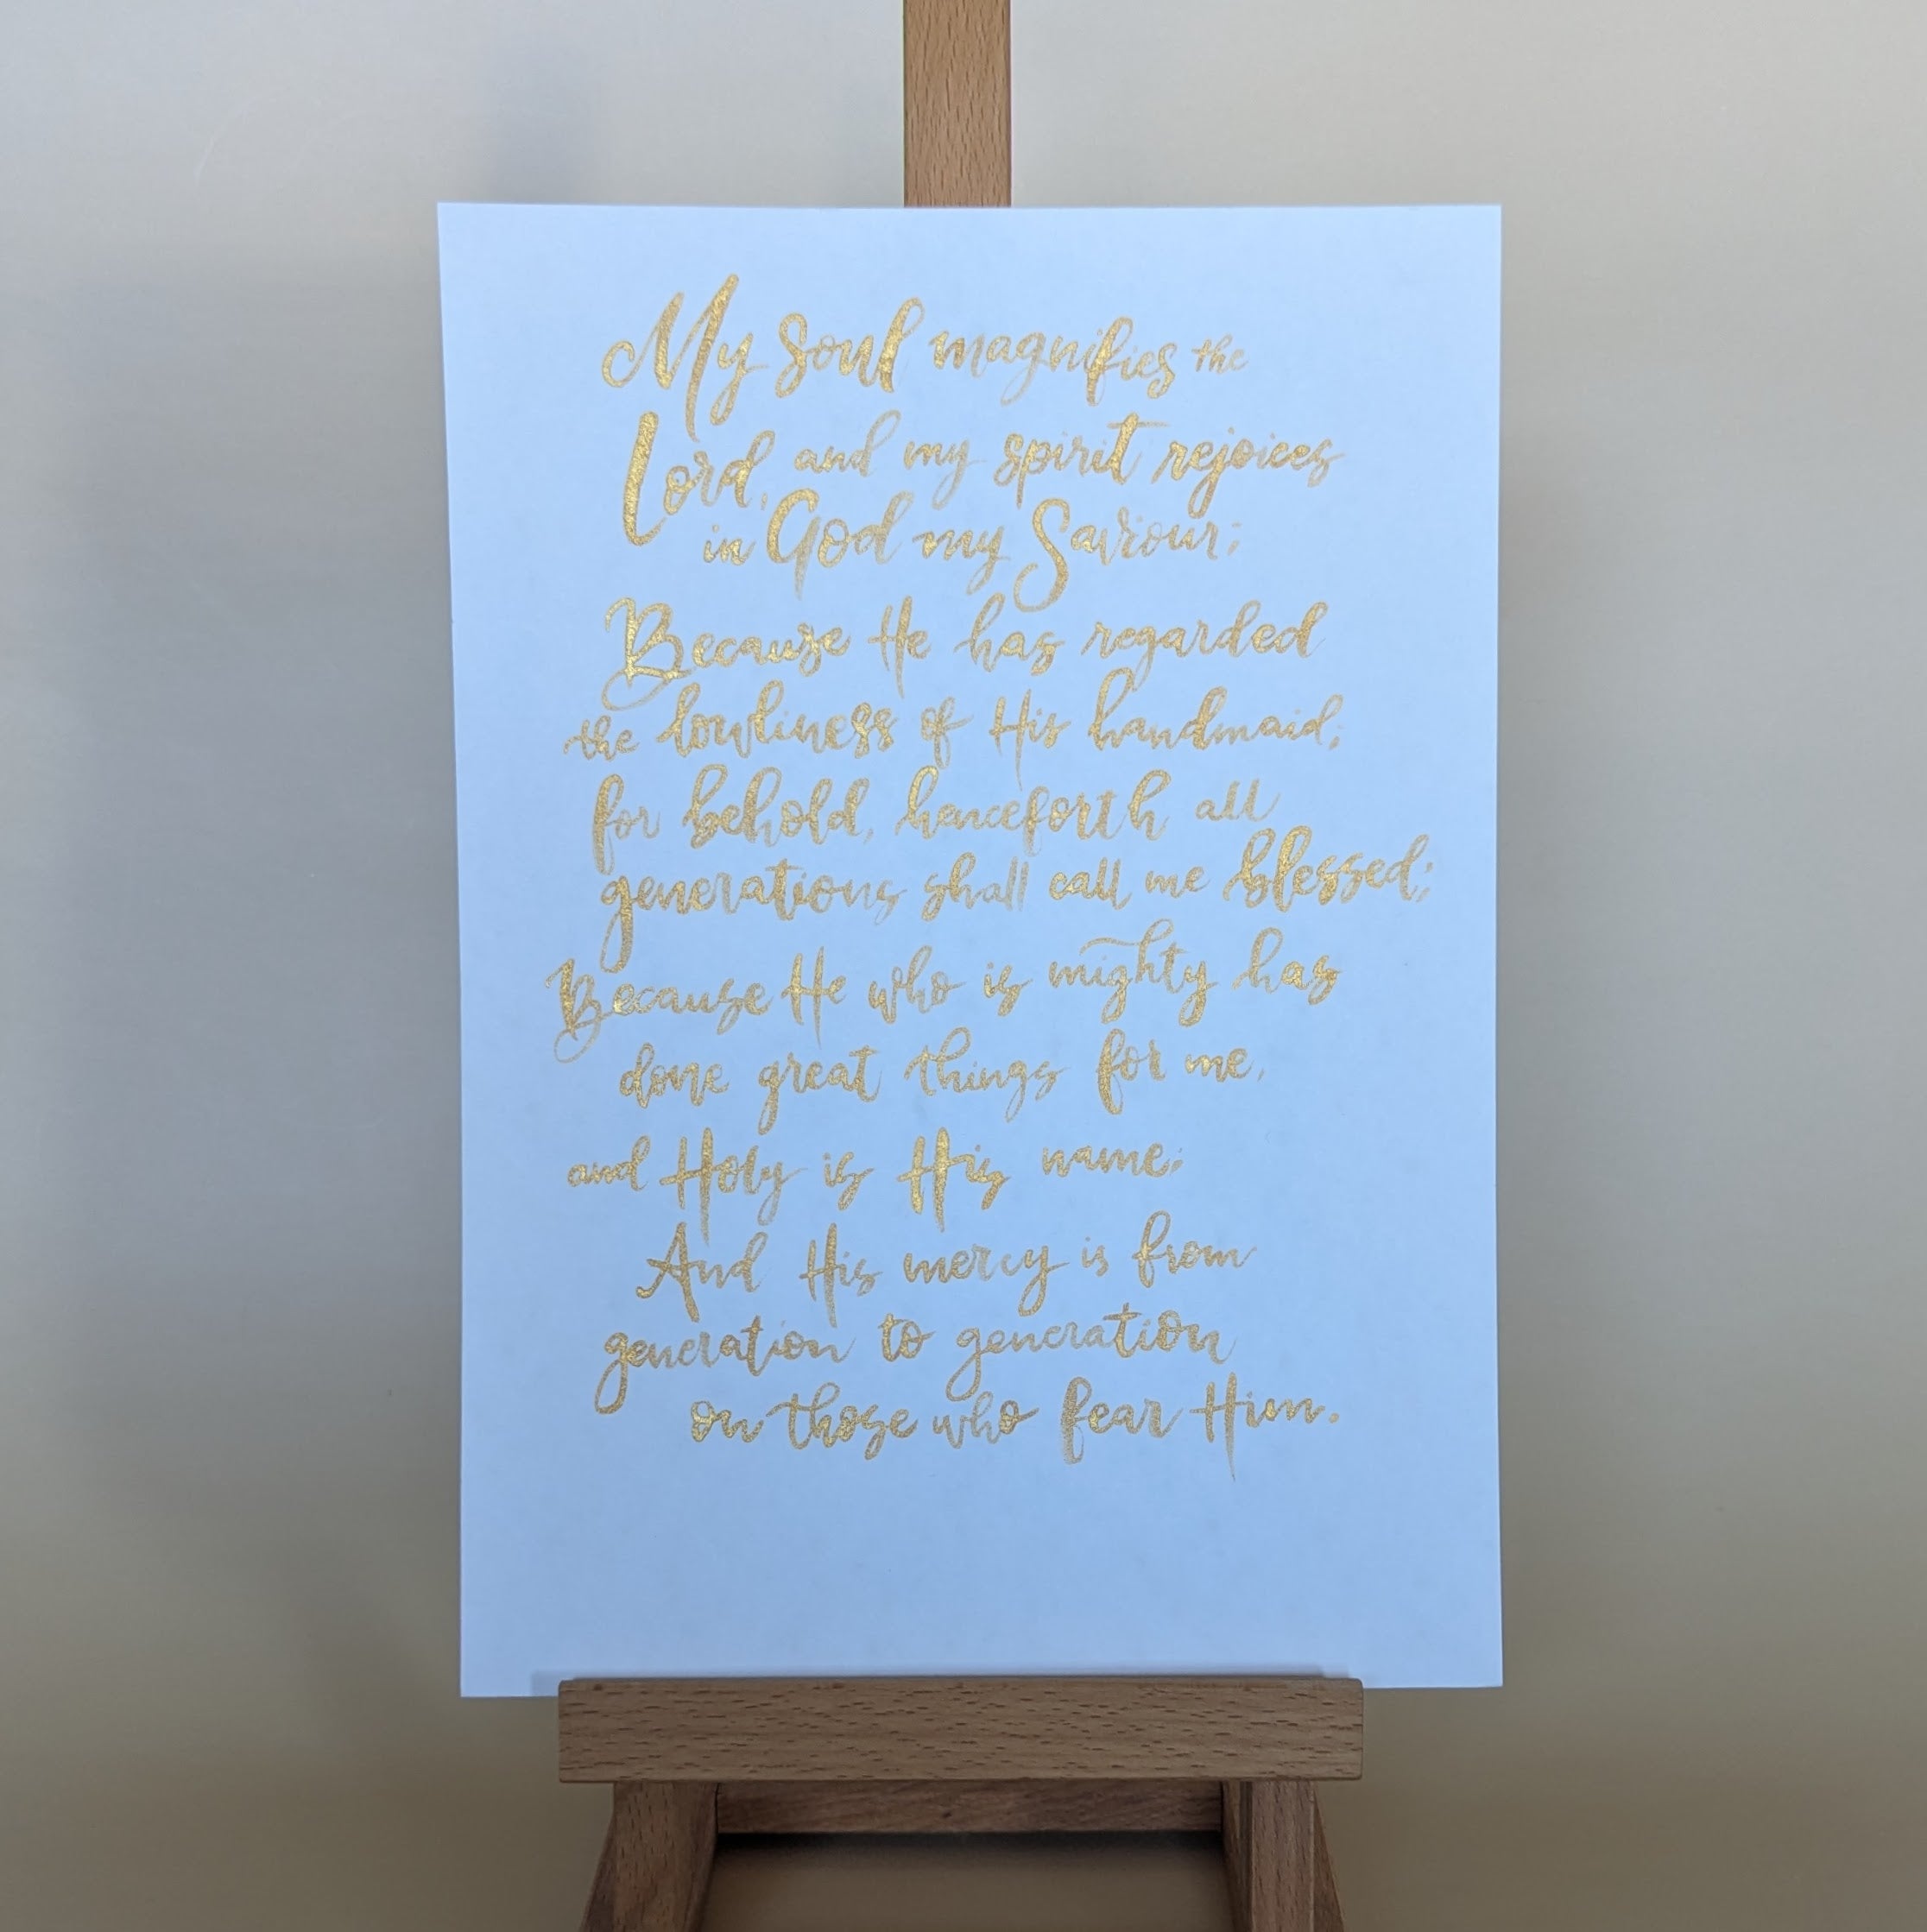 My soul magnifies the
Lord, and my spirit rejoices
in God my Saviour;
Because He has regarded
the lowliness of His handmaid;
for behold, henceforth all
generations shall call me blessed;
Because He who is mighty has
done great things for me,
and Holy is His name;
And His mercy is from
generation to generation
on those who fear Him.